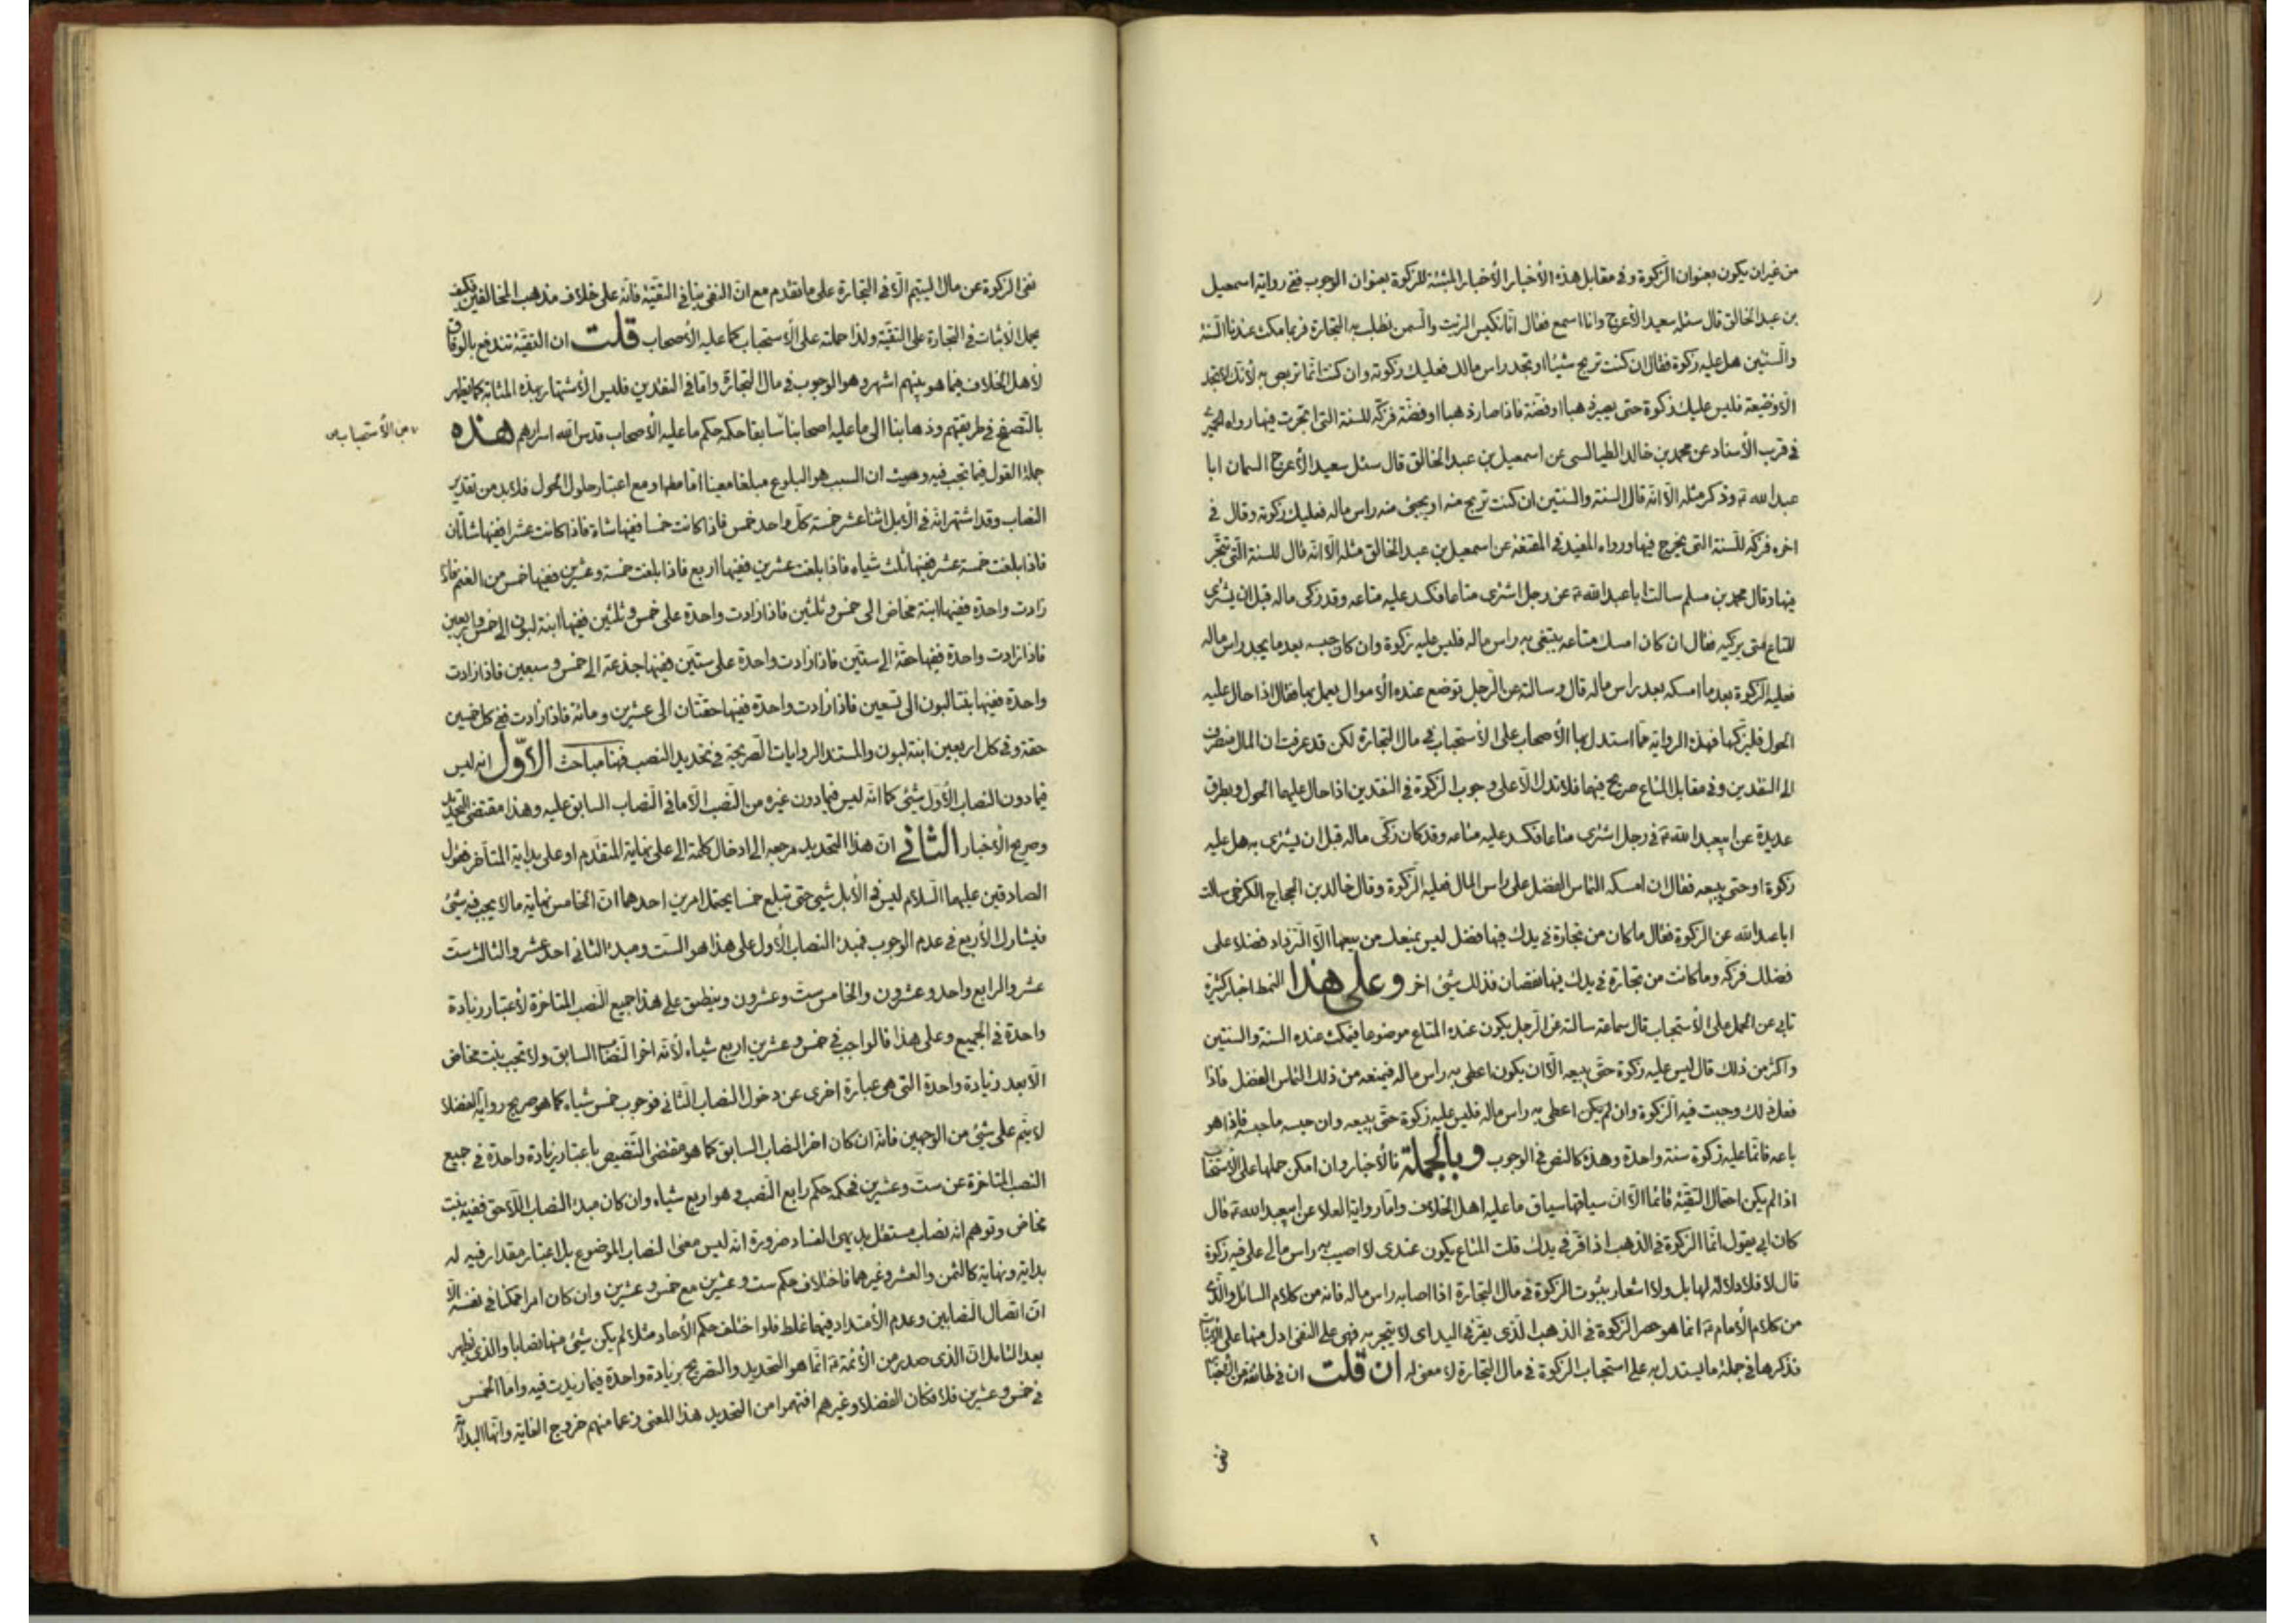 من غير ان يكون بعنوان الزكوة وفي مقابل هذه الأخبار الأخبار المثبتة للزكوة بعنوان الوجوب ففي رواية اسمعيل
بن عبد الخالق قال سئله سعيد الأعرج وانا اسمع فقال انا نكبس الزيت والسمن نطلب به التجارة فربما مكث عندنا السنة
والسنتين هل عليه زكوة فقال ان كنت تربح شيئا او تجد راس مالك فعليك زكوته وان كنت انما تربص به لأنك لا تجد
الا وضيعة فليس عليك زكوة حتى يصير ذهبا او فضة فاذا صار ذهبا او فضة فزكه للسنة التي اتجرت فيها رواه
في قرب الأسناد عن محمد بن خالد الطيالسي عن اسمعيل بن عبد الخالق قال سئل سعيد الأعرج السمان ابا
عبد الله ع وذكر مثله الا انه قال السنة والسنتين ان كنت تربح منه او يجيئ منه راس ماله فعليك زكوته وقال في
اخره فزكه للسنة التي يخرج فيها ورواه المفيد في المقنعة عن اسمعيل بن عبد الخالق مثله الا انه قال للسنة التي تتجر
فيها وقال محمد بن مسلم سالت ابا عبد الله ع عن رجل اشترى متاعا فكسد عليه متاعه وقد زكى ماله قبل ان يشترى
المتاع متى يزكيه فقال ان كان امسك متاعه يبتغى به راس ماله فليس عليه زكوة وان كان حبسه بعد ما يجد راس ماله
فعليه الزكوة بعد ما امسكه بعد راس ماله قال وسالته عن الرجل توضع عنده الأموال يعمل بها فقال اذا حال عليه
الحول فليزكها فهذه الرواية مما استدل بها الأصحاب على الأستحباب في مال التجارة لكن قد عرفت ان المال منصرف
الى النقدين وفي مقابل المتاع صريح فيها فلا تدل الا على وجوب الزكوة في النقدين اذا حال عليها الحول وبطرق
عديدة عن ابيعبد الله ع في رجل اشترى متاعا فكسد عليه متاعه وقد كان زكى ماله قبل ان يشترى به هل عليه
زكوة او حتى يبيعه فقال ان امسكه التماس الفضل على راس المال فعليه الزكوة وقال خالد بن الحجاج الكرخي سالت
ابا عبد الله عن الزكوة فقال ما كان من تجارة في يدك فيها فضل ليس يمنعك من بيعها الا لتزداد فضلا على
فضلك فزكه وما كانت من تجارة في يدك فيها نقصان فذلك شيئ اخر وعلى هذا النمط اخبار كثيرة
تابى عن الحمل على الأستحباب قال سماعة سالته عن الرجل يكون عنده المتاع موضوعا فيمكث عنده السنة والسنتين
واكثر من ذلك قال ليس عليه زكوة حتى يبيعه الا ان يكون اعطى به راس ماله فيمنعه من ذلك التماس الفضل فاذا
فعل ذلك وجبت فيه الزكوة وان لم يكن اعطى به راس ماله فليس عليه زكوة حتى يبيعه وان حبسه ما حبسه فاذا هو
باعه فانما عليه زكوة سنة واحدة وهذه كالنص في الوجوب وبالجملة فالأخبار وان امكن حملها على الأستحباب
اذا لم يكن احتمال التقية قائما الا ان سياقها سياق ما عليه اهل الخلاف واما رواية العلا عن ابيعبد الله ع قال
كان ابي يقول انما الزكوة في الذهب اذا قر في يدك قلت المتاع يكون عندى لا اصيب به راس مالى على فيه زكوة
قال لا فلا دلالة لها بل ولا اشعار بثبوت الزكوة في مال التجارة اذا اصابه راس ماله فانه من كلام السائل والذى
من كلام الأمام ع انما هو حصر الزكوة في الذهب الذى يقر في اليد اى لا يتجر به فهي على النفى ادل منها على الأثبات
فذكرها في جملة ما يستدل به على استحباب الزكوة في مال التجارة لا معنى له ان قلت ان في طائفة من الأخبار
نفى
٢
نفى الزكوة عن مال اليتيم الا في التجارة على ما تقدم مع ان النفى ينافى التقية فانه على خلاف مذهب المخالفين فكيف
يحمل الاثبات في التجارة على التقية ولذا حملته على الأستحباب كما عليه الأصحاب قلت ان التقية تندفع بالوفاق
لأهل الخلاف فيما هو بينهم اشهر وهو الوجوب في مال التجارة واما في النقدين فليس الأشتهار بهذه المثابة كما يظهر
بالتصفح في طريقتهم وذهابنا الى ما عليه اصحابنا سابقا حكمه حكم ما عليه الأصحاب قدس الله اسرارهم هذه
من الأستحباب ص
جملة القول فيما تجب فيه وحيث ان السبب هو البلوغ مبلغا معينا اما مطلقا ومع اعتبار حلول الحول فلا بد من تقدير
النصاب وقد اشتهر انه في الأبل اثنا عشر خمسة كل واحد خمس فاذا كانت خمسا ففيها شاة فاذا كانت عشرا ففيها شاتان
فاذا بلغت خمسة عشر ففيها ثلث شياه فاذا بلغت عشرين ففيها اربع فاذا بلغت خمسة وعشرين ففيها خمس من الغنم فاذا
زادت واحدة ففيها ابنة مخاض الى خمس وثلثين فاذا زادت واحدة على خمس وثلثين ففيها ابنة لبون الى خمس واربعين
فاذا زادت واحدة ففيها حقة الى ستين فاذا زادت واحدة على ستين ففيها جذعة الى خمس وسبعين فاذا زادت
واحدة ففيها بنتا لبون الى تسعين فاذا زادت واحدة ففيها حقتان الى عشرين ومائة فاذا زادت ففي كل خمسين
حقة وفي كل اربعين ابنة لبون والمستند الروايات الصريحة في تحديد النصب فهنا مباحث الأول انه ليس
فيما دون النصاب الأول شيئ كما انه ليس فيما دون غيره من النصب الا ما في النصاب السابق عليه وهذا مقتضى التحديد
وصريح الأخبار الثاني ان هذا التحديد مرجعه الى ادخال كلمة الى على نهاية المتقدم او على بداية المتاخر فقول
الصادقين عليهما السلام ليس في الأبل شيئ حتى تبلغ خمسا يحتمل امرين احدهما ان الخامس نهاية ما لا يجب فيه شيئ
فيشارك الأربع في عدم الوجوب فمبدء النصاب الأول على هذا هو الست ومبدء الثاني احد عشر والثالث ست
عشر والرابع واحد وعشرون والخامس ست وعشرون وينطبق على هذا جميع النصب المتاخرة لأعتبار زيادة
واحدة في الجميع وعلى هذا فالواجب في خمس وعشرين اربع شياه لأنه اخر النصاب السابق ولا تجب بنت مخاض
الا بعد زيادة واحدة التي هي عبارة اخرى عن دخول النصاب الثاني فوجوب خمس شياه كما هو صريح رواية الفضلا
لا يتم على شيئ من الوجهين فانه ان كان اخر النصاب السابق كما هو مقتضى التنصيص باعتبار زيادة واحدة في جميع
النصب المتاخرة عن ست وعشرين فحكمه حكم رابع النصب وهو اربع شياه وان كان مبدء النصاب اللاحق ففيه بنت
مخاض وتوهم انه نصاب مستقل بديهى الفساد ضرورة انه ليس معنى النصاب الموضوع بل اعتبار مقدار فيه له
بداية ونهاية كالثمن والعشر وغيرهما فاختلاف حكم ست وعشرين مع خمس وعشرين وان كان امرا ممكنا في نفسه الا
ان اتصال النصابين وعدم الأمتداد فيهما غلط فلو اختلف حكم الأحاد مثلا لم يكن شيئ منها نصابا والذى يظهر
بعد التامل ان الذى صدر من الأئمة ع انما هو التحديد والتصريح بزيادة واحدة فيما زيدت فيه واما الخمس
في خمس وعشرين فلا فكان الفضلاء وغيرهم افتهموا من التحديد هذا المعنى زعما منهم خروج الغاية وانها البداية